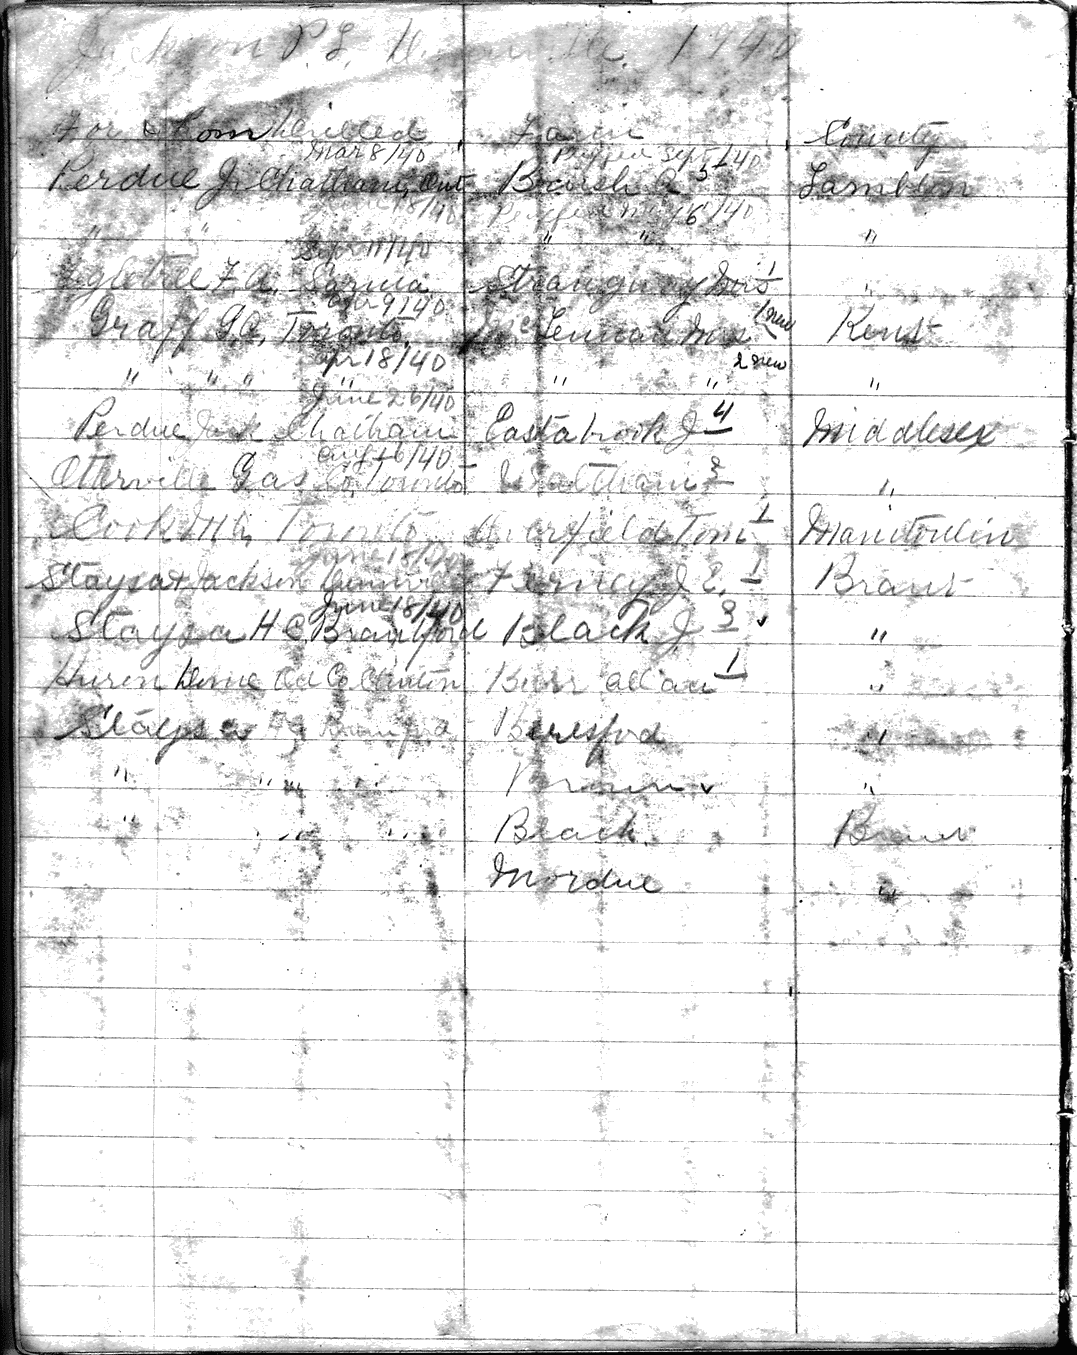 Jackson P.L. 1940
For Whom Drilled Farm County
Mar 8/40 Sept /40
Perdue J. Chatham, Ont. Brush A 5 Lambton
18/40 16/40
" " " " "
Sept 11/40
F. A. Sarnia Strangway Geo 1 "
Apr 9/40
Graff G.A. Toronto McLennan Mrs 1 new Kent
Apr 18/40 2 new
" " " " " " "
June 26/40
Perdue Jack Chatham Eastabrook J 4 Middlesex
Aug 16/40
Otterville Gas Co. Toronto Waltham 3 "
Cook Toronto Tom 1 Manitoulin
June 18/40
Staysa & Jackson Ferney J. E. 1 Brant
June 18/40
Staysa H C Brantford Black J 3 "
Huron Dome Oil Co Clinton Burr Allan 1 "
Staysa H C Brantford Beresford "
" " " " Brown "
" " " Black Brant
Mordue "